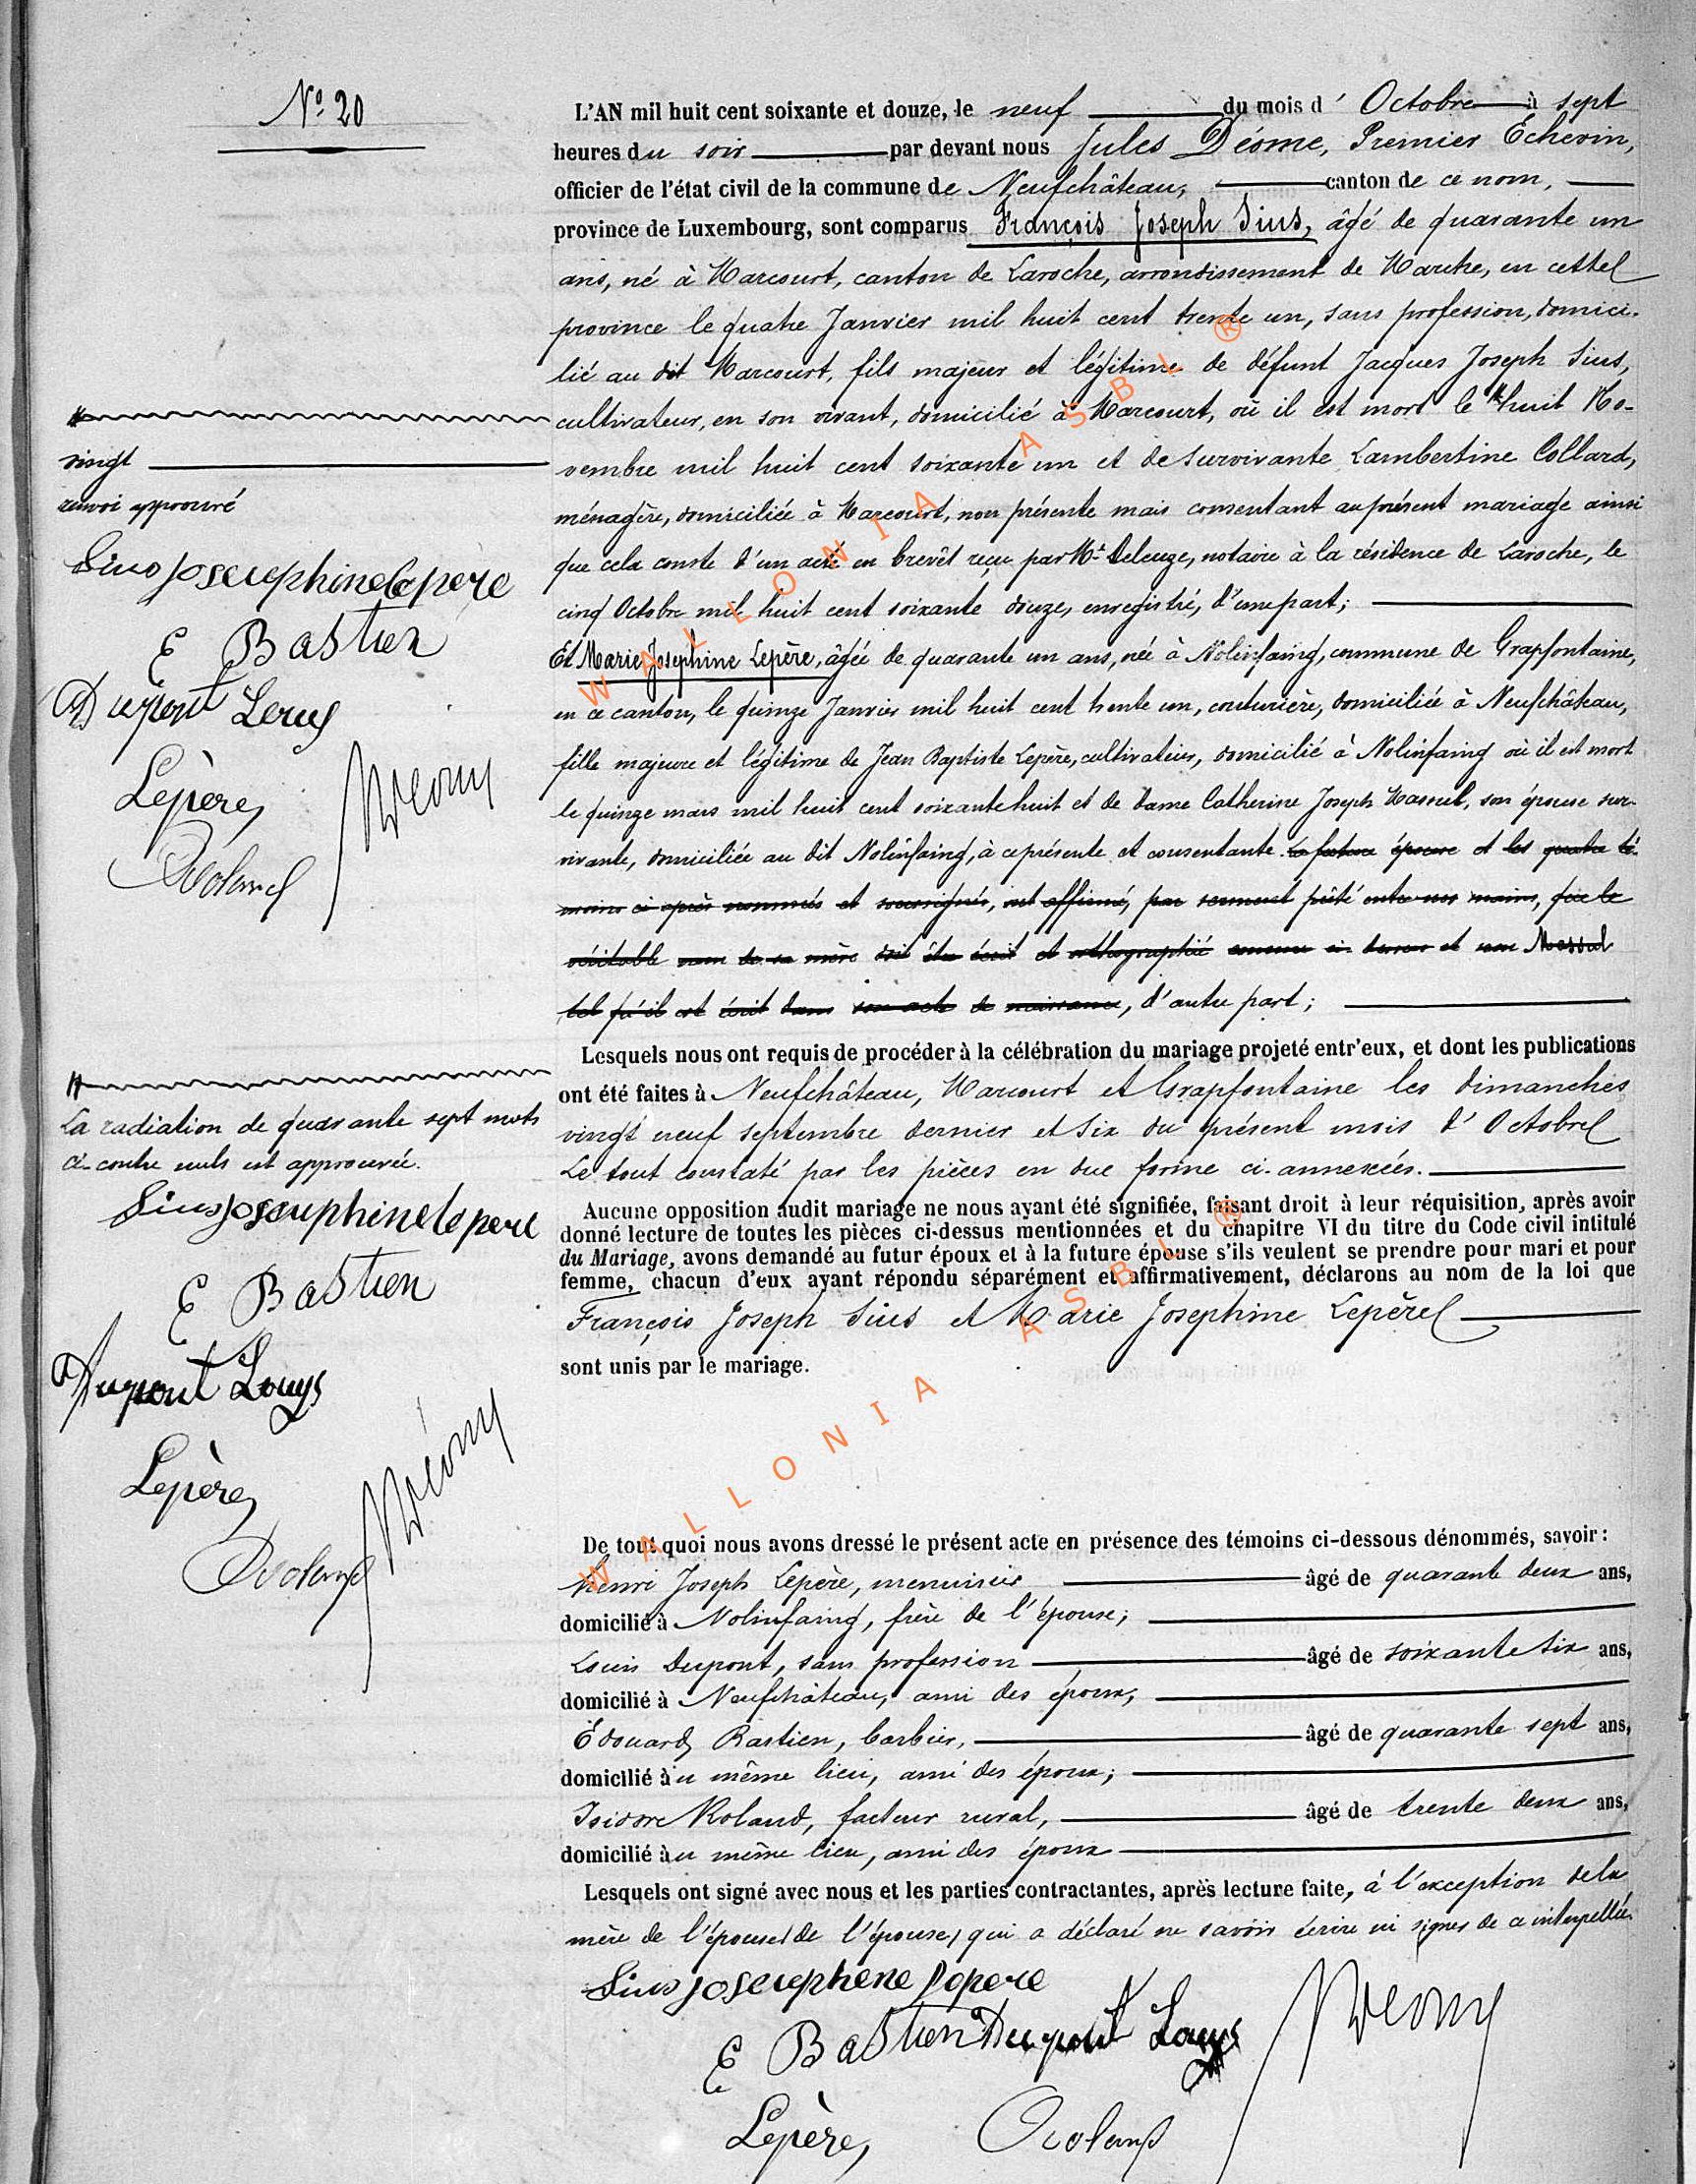 N° 20
L'AN mil huit cent soixante et douze, le neuf du mois d'Octobre à sept
heures du soir par devant nous Jules Déome, Premier Echevin,
officier de l'état civil de la commune de Neufchâteau, canton de ce nom,
province de Luxembourg, sont comparus François Joseph Sius, âgé de quarante un
ans, né à Marcourt, canton de Laroche, arrondissement de Marche, en cette
province le quatre Janvier mil huit cent trente un, sans profession, domici-
lié au dit Marcourt, fils majeur et légitime de défunt Jacques Joseph Sius,
cultivateur, en son vivant, domicilié à Marcourt, où il est mort le huit No-
vembre mil huit cent soixante un et de survivante Lambertine Collard,
ménagère, domiciliée à Marcourt, non présente mais consentant au présent mariage ainsi
que cela conste d'un acte en brevêt reçu par Mt. Deleuze, notaire à la résidence de Laroche, le
cinq Octobre mil huit cent soixante douze, enregistré, d'une part;
Et Marie Josephine Lepère, âgée de quarante un ans, née à Nolinfaing, commune de Grapfontaine,
en ce canton, le quinze Janvier mil huit cent trente un, couturière, domiciliée à Neufchâteau,
fille majeure et légitime de Jean Baptiste Lepère, cultivateur, domicilié à Nolinfaing où il est mort
le quinze mars mil huit cent soixante huit et de dame Catherine Joseph Massul, son épouse sur-
vivante, domiciliée au dit Nolinfaing, à ce présente et consentante. la future épouse et les quatre té-
moins ci après nommés et soussignés, ont affirmé, par serment prêté entre nos mains, que le
véritable nom de sa mère doit être écrit et orthographié comme ci dessus et non Massul
tel qu'il est écrit dans son acte de naissance, d'autre part;
Lesquels nous ont requis de procéder à la célébration du mariage projeté entr'eux, et dont les publications
ont été faites à Neufchâteau, Marcourt et Grapfontaine les dimanches
vingt neuf septembre dernier et six du présent mois d'Octobre
Le tout constaté par les pièces en due forme ci-annexées.
Aucune opposition audit mariage ne nous ayant été signifiée, faisant droit à leur réquisition, après avoir
donné lecture de toutes les pièces ci-dessus mentionnées et du chapitre VI du titre du Code civil intitulé
du Mariage, avons demandé au futur époux et à la future épouse s'ils veulent se prendre pour mari et pour
femme, chacun d'eux ayant répondu séparément et affirmativement, déclarons au nom de la loi que
François Joseph Sius et Marie Josephine Lepère
sont unis par le mariage.
De tout quoi nous avons dressé le présent acte en présence des témoins ci-dessous dénommés, savoir :
Henri Joseph Lepère, menuisier âgé de quarante deux ans,
domicilié à Nolinfaing, frère de l'épouse;
Louis Dupont, sans profession âgé de soixante six ans,
domicilié à Neufchâteau, ami des époux;
Edouard Bastien, barbier, âgé de quarante sept ans,
domicilié au même lieu, ami des époux;
Isidore Roland, facteur rural, âgé de trente deux ans,
domicilié au même lieu, ami des époux
Lesquels ont signé avec nous et les parties contractantes, après lecture faite, à l'exception de la
mère de l'épouse (de l'épouse) qui a déclaré ne savoir écrire ni signer de ce interpellée.
Sius joseuphene lepere
E Bastien Dupont Louys
Lepère, Roland JDeomy
vingt
renvoi approuvé
Sius joseuphine lepère
E Bastien
Dupont Louys
Lepère, JDeomy
Roland
La radiation de quarante sept mots
ci-contre nuls est approuvée.
Sius joseuphine lepere
E Bastien
Dupont Louys
Lepère, JDeomy
Roland
WALLONIA ASBL ®
WALLONIA ASBL ®